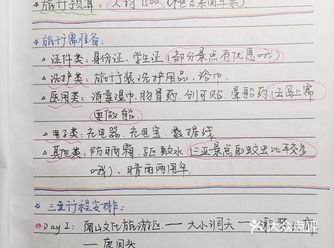 旅行预算：人均1500（不包含来回车票）
*旅行需准备：
△ 证件类：身份证、学生证（部分景点有优惠哦）
△ 洗护类：旅行装洗护用品、浴巾
△ 医用类：消毒湿巾、肠胃药、创可贴、晕船药（去岛上需
要做船）
△ 电子类：充电器、充电宝、数据线
△ 其他类：防晒霜、驱蚊水（三亚景点的蚊虫比较多
哦）、晴雨两用伞
三亚行程安排：
Day 2：南山文化旅游区—大小洞天—
—鹿回头